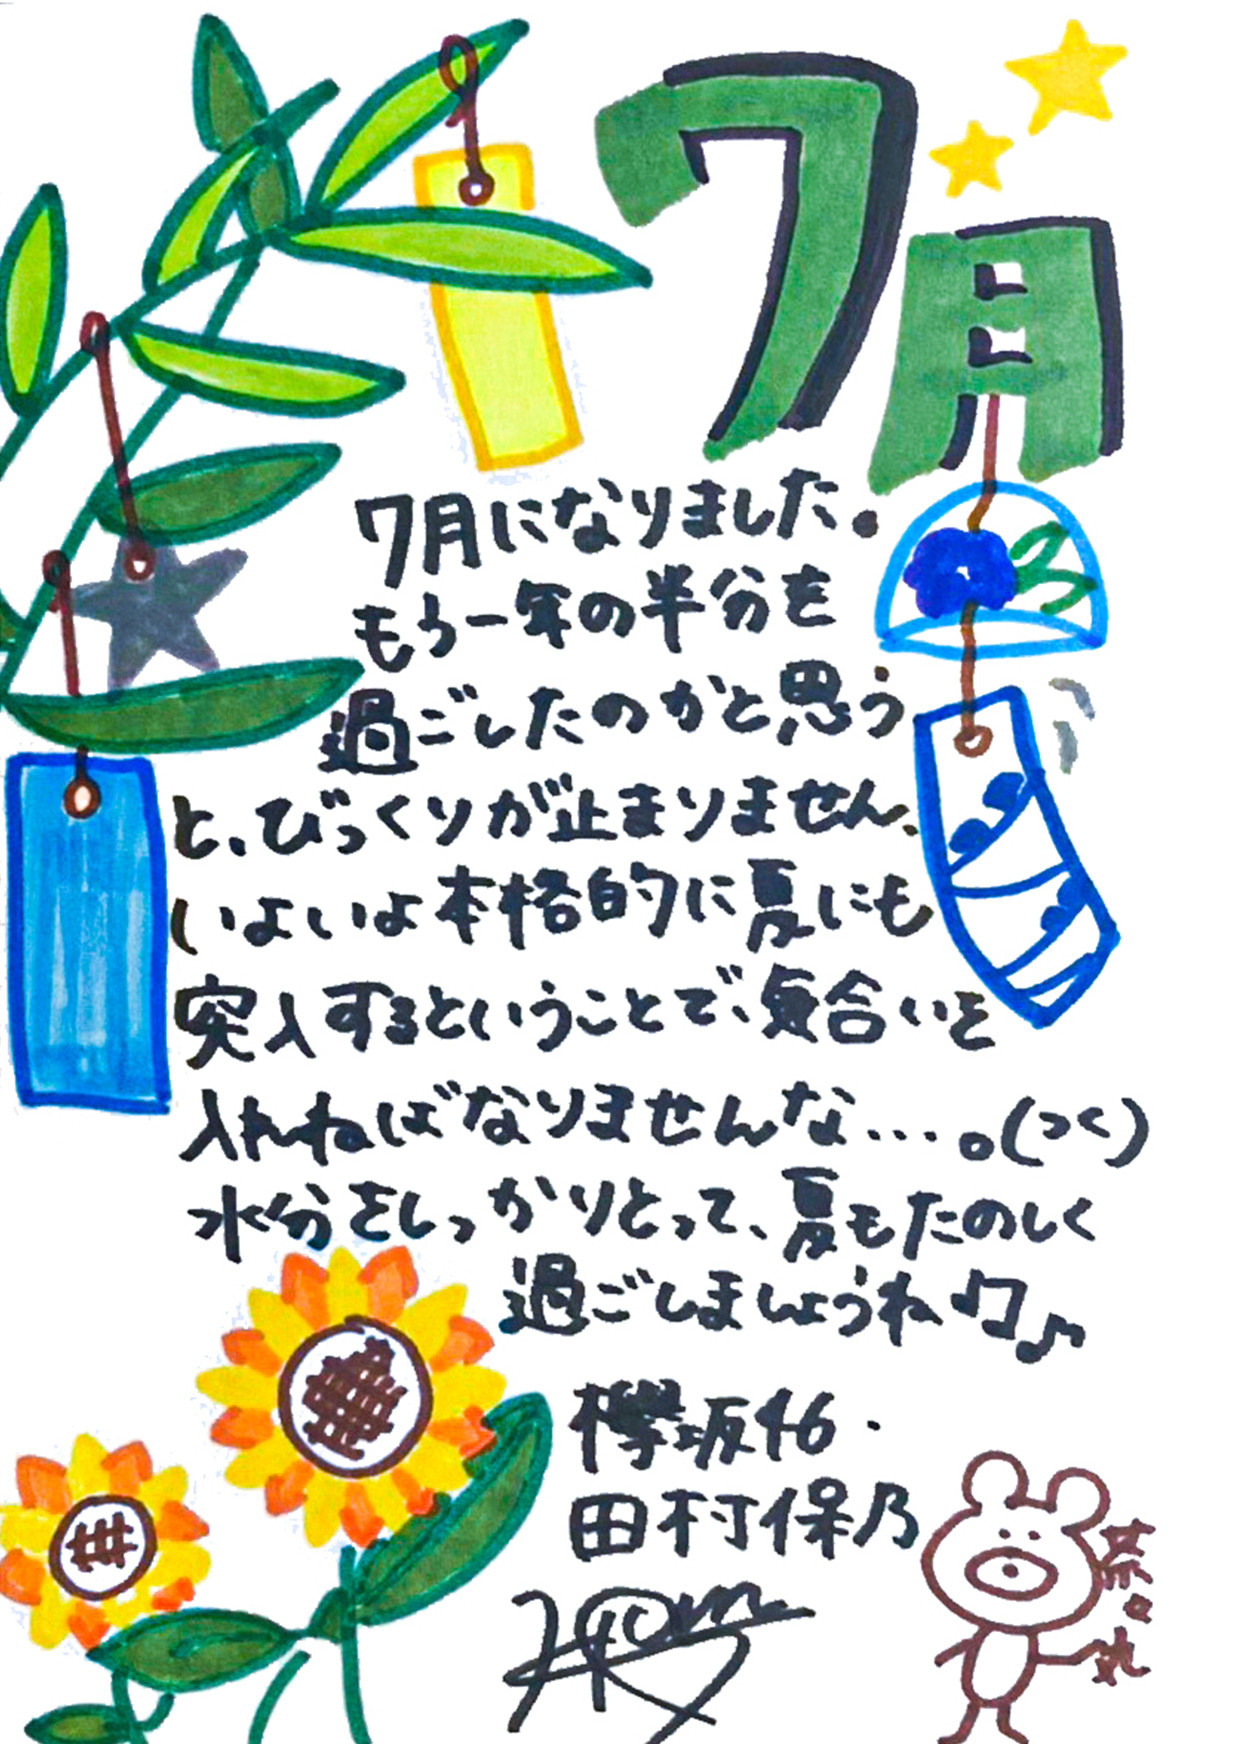 7月
7月になりました。
もう一年の半分を
過ごしたのかと思う
と、びっくりが止まりません、
いよいよ本格的に夏にも
突入するということで、気合いを
入れねばなりませんな…。(つく)
水分をしっかりとって、夏もたのしく
過ごしましょうね♪
欅坂46・
田村保乃